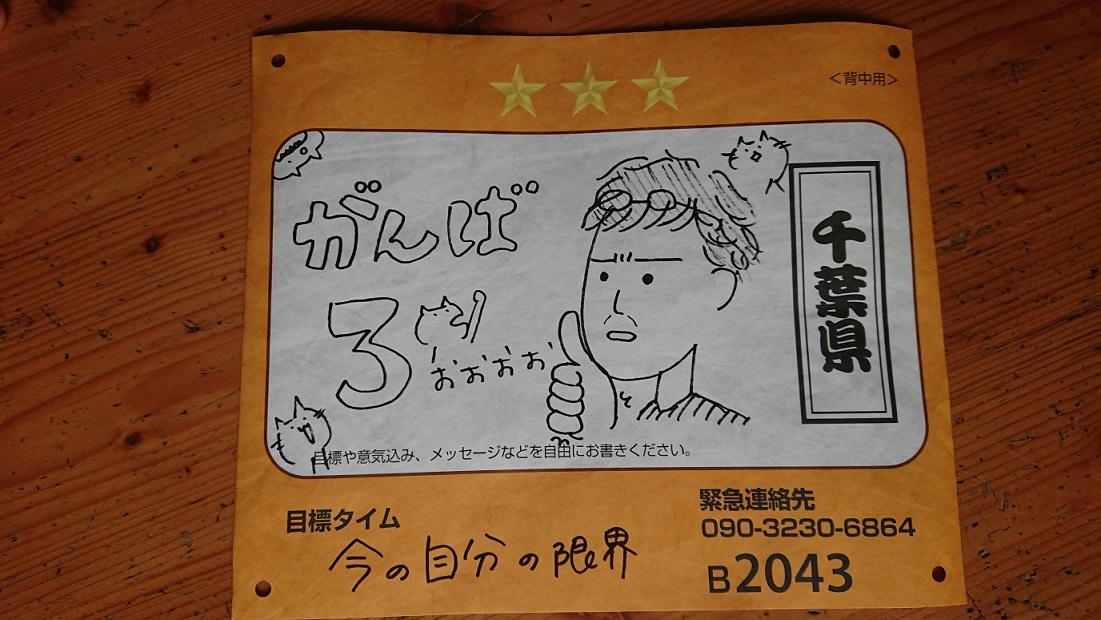 <背中用>
がんば
ろ
おおおお
千葉県
目標や意気込み、メッセージなどを自由にお書きください。
目標タイム
今の自分の限界
緊急連絡先
090-3230-6864
B2043